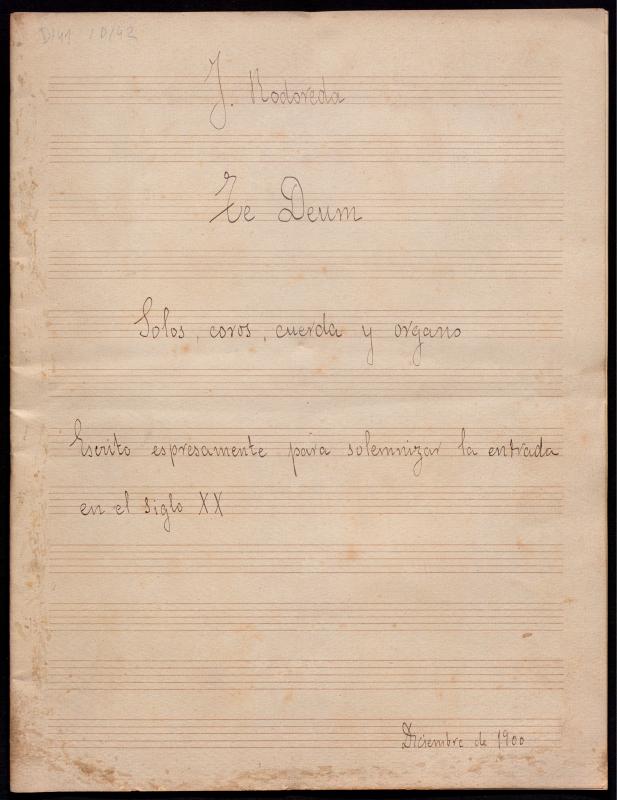 D/41 / D/42
J. Rodoreda
Te Deum
Solos, coros, cuerda y organo
Escrito espresamente para solemnizar la entrada
en el siglo XX
Diciembre de 1900